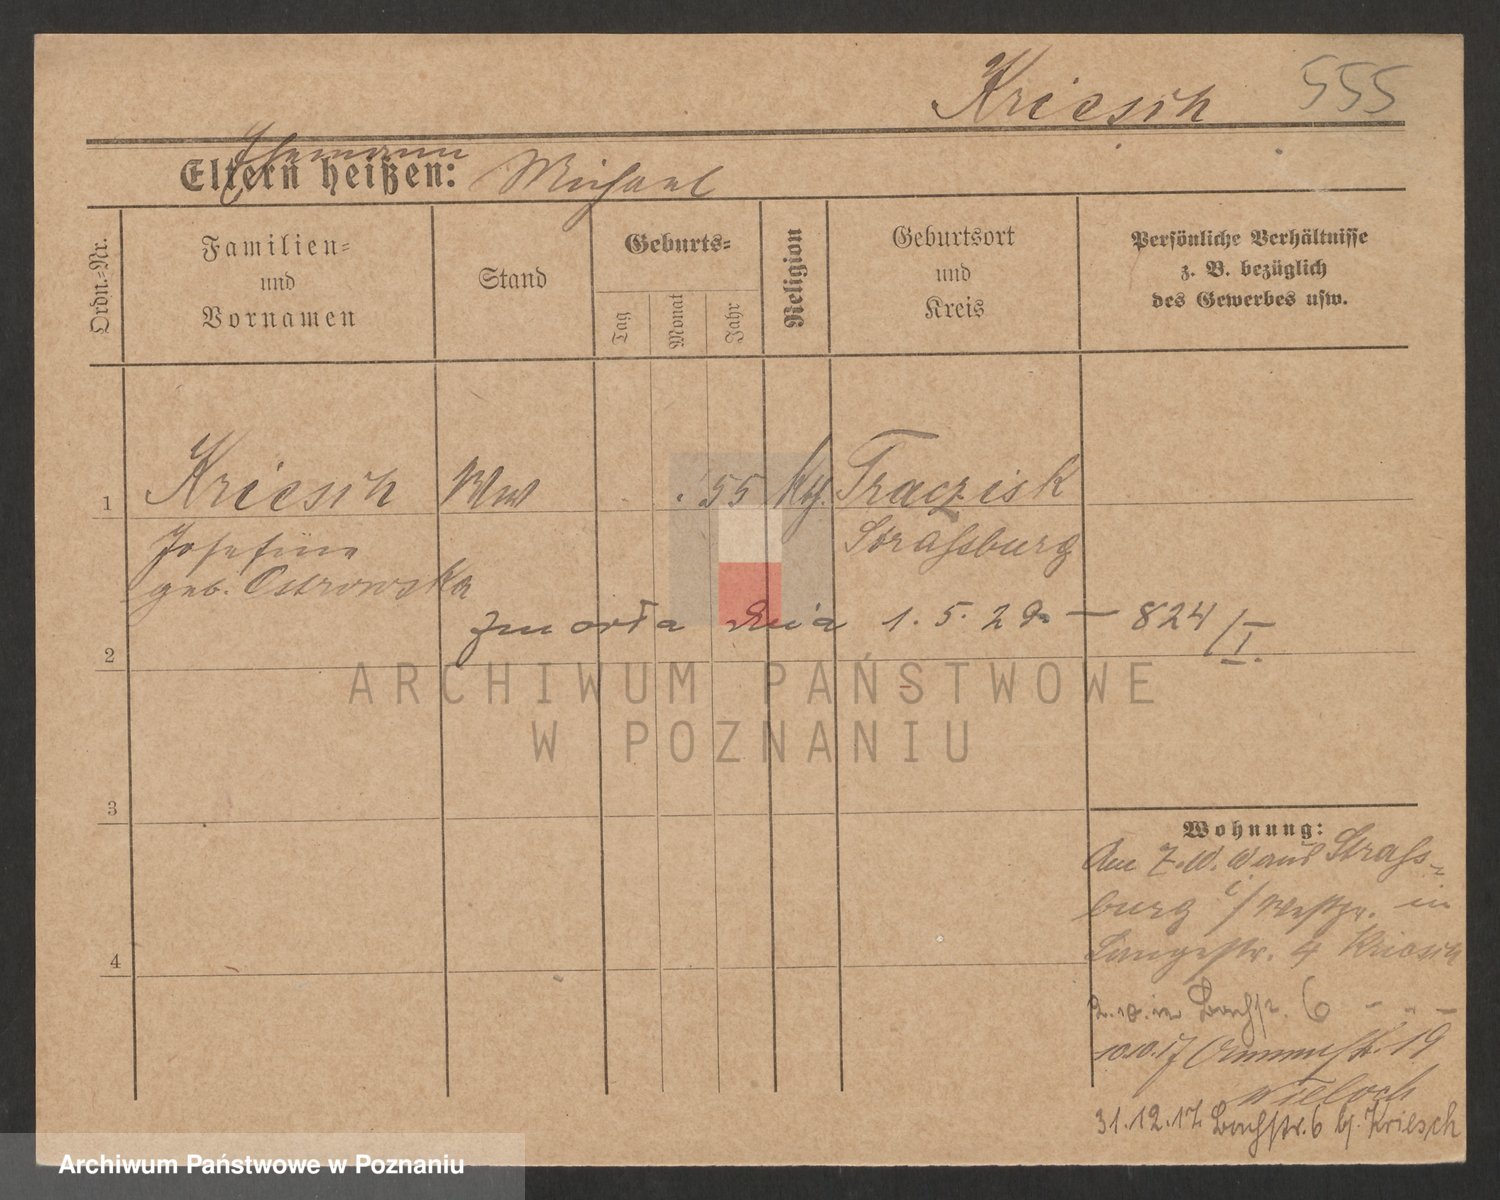 Kriesch 555
Ehemann
Eltern heißen: Michael
Ordn.-Nr.
Familien-
und
Vornamen
Stand
Geburts-
Tag
Monat
Jahr
Religion
Geburtsort
und
Kreis
Persönliche Verhältnisse
z. B. bezüglich
des Gewerbes usw.
1 Kriesch Ww 55 Traczisk
Josefine Strassburg
geb. Ostrowska
zmarła dnia 1. 5. 2 — 824/I.
2
3
4
Wohnung:
aus Strass-
burg i/Westpr. in
Langestr. 4 Kriesch
in Bachstr. 6 - - -
10.10.17 19
Wieloch
31.12.17 Bachstr. 6 b/. Kriesch
ARCHIWUM PAŃSTWOWE
W POZNANIU
Archiwum Państwowe w Poznaniu